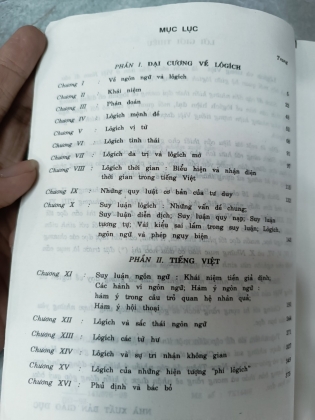 MỤC LỤC
Trang
PHẦN I. ĐẠI CƯƠNG VỀ LÔGÍCH
Chương I Về ngôn ngữ và lôgích
Chương II Khái niệm
Chương III Phán đoán
Chương IV Lôgích mệnh đề
Chương V Lôgích vị từ
Chương VI Lôgích tình thái
Chương VII : Lôgích đa trị và lôgích mờ
Chương VIII : Lôgích thời gian : Biểu hiện và nhận diện
thời gian trong tiếng Việt
Chương IX : Những quy luật cơ bản của tư duy
Chương X : Suy luận lôgích : Những vấn đề chung;
Suy luận diễn dịch; Suy luận quy nạp; Suy luận
tương tự; Vài kiểu sai lầm trong suy luận; Lôgích,
ngôn ngữ và phép ngụy biện
PHẦN II. TIẾNG VIỆT
Chương XI Suy luận ngôn ngữ : Khái niệm tiền giả định;
Các hành vi ngôn ngữ; Hàm ý ngôn ngữ :
hàm ý trong câu trỏ quan hệ nhân quả;
Hàm ý hội thoại
Chương XII : Lôgích và sắc thái ngôn ngữ
Chương XIII : Lôgích các từ hư
Chương XIV : Lôgích và sự tri nhận không gian
Chương XV : Lôgích của những hiện tượng "phi lôgích"
Chương XVI : Phủ định và bác bỏ